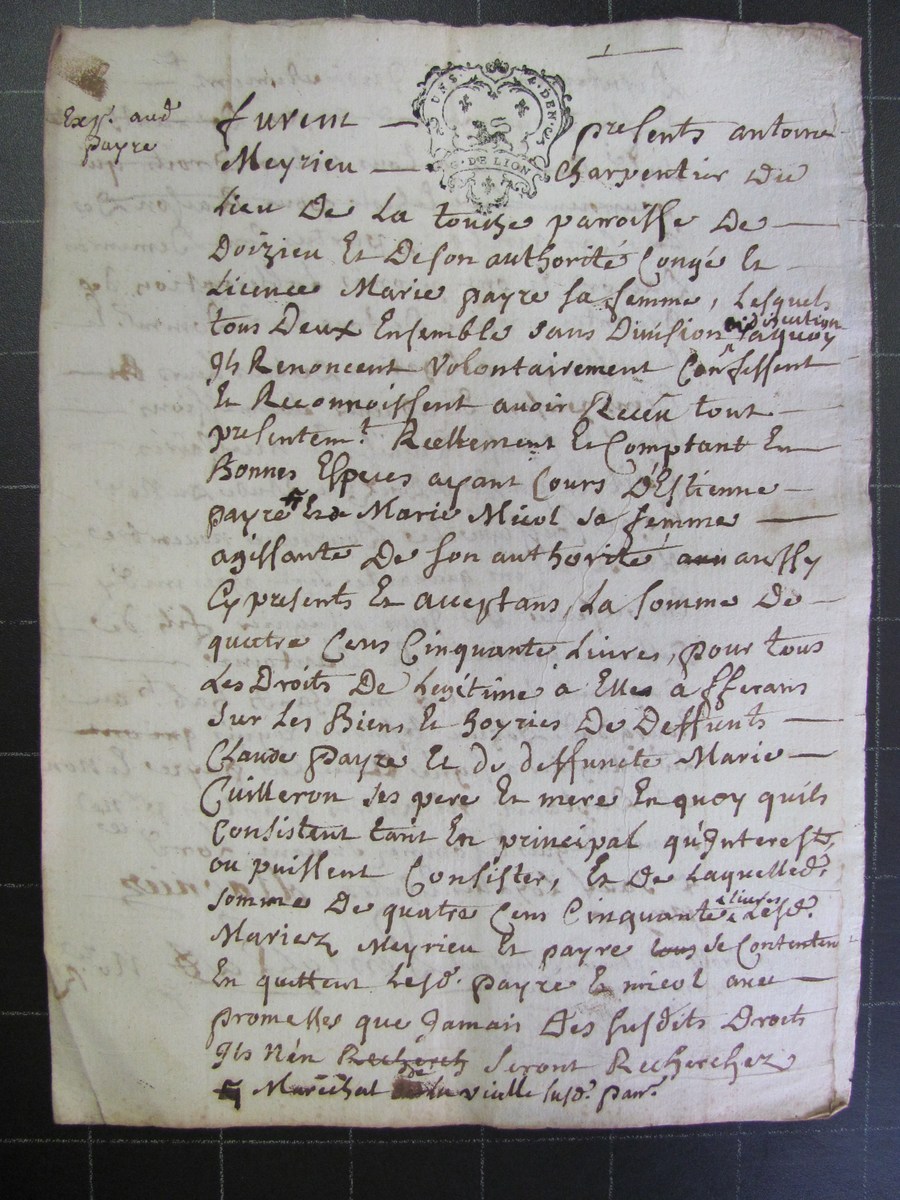 Exp. aud
payre
UNS. 4. DEN.
G. DE LION
furent — presents antoine
Meyrieu — Charpentier du
Lieu De La touche parroisse De —
Doizieu Et De son authorité Congé Et —
Licence Marie payre sa femme, Lesquels
tous Deux Ensemble sans Division ni discution a quoy
Ils Renoncent Volontairement Confessent
Et Reconnoissent avoir Receu tout —
presentem.t Reellement Et Comptant En
Bonnes Especes ayant Cours D'Estienne —
payre Et Marie Micol sa femme —
agissante De son authorité aussy
Cy presents Et acceptans La somme De —
quatre Cens Cinquante Livres, pour tous
Les Droits De Legitime a Elle afferans
Sur Les Biens Et hoyries De Deffunts —
Claude payre Et de deffuncte Marie —
Cuilleron ses pere Et mere En quoy quils
Consistent tant En principal qu'Interests,
ou puissent Consister, Et De Laquelled.
somme De quatre Cens Cinquante livres Lesd.
Mariez Meyrieu Et payre se Contentent
En quittent Lesd. payre Et micol avec —
promesses que Jamais Des susdits Droits
Ils N'en Recherch seront Recherchez
Maréchal de la vielle susd. parr.